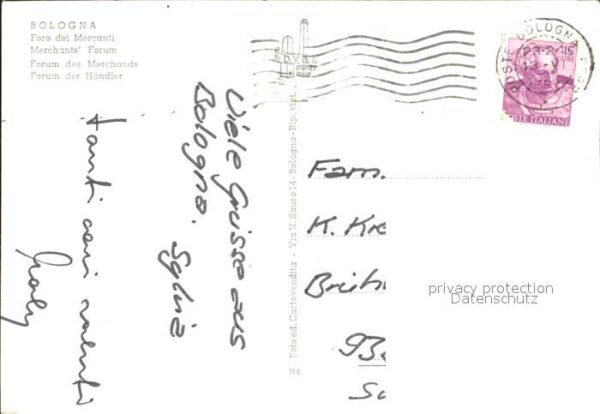 BOLOGNA
Foro dei Mercanti
Merchants' Forum
Forum des Merchands
Forum der Händler
Tanti cari saluti
Viele Grüsse aus
Bologna. Sylvia
114 Fotoed. Cartovendita - Via N. Sauro 14 - Bologna - Rip. viet.
POSTE BOLOGNA
POSTE ITALIANE
Fam.
K. Kre
Brüh
93
privacy protection
Datenschutz